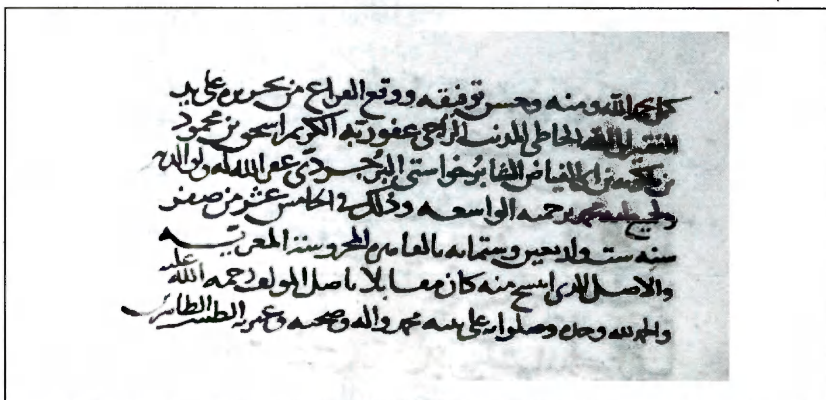 كمل بحمد الله ومنه وحسن توفيقه ووقع الفراغ من تحريره على يد
الفقير الى الله الخاطى المذنب الراجى عفو ربه الكريم اسحق بن محمود
بن بلكويه بن ابى الفياض الشابرخواستى البروجردى غفر الله له ولوالديه
ولجميع امة محمد برحمته الواسعه وذلك فى الخامس عشر من صفر
سنه ست واربعين وستمايه بالقاهره المحروسه المعزيه
والاصل الذى انتسخ منه كان مقابلا باصل المولف رحمه الله عليه
والحمد لله وحده وصلواته على نبيه محمد واله وصحبه وعترته الطيبين الطاهرين